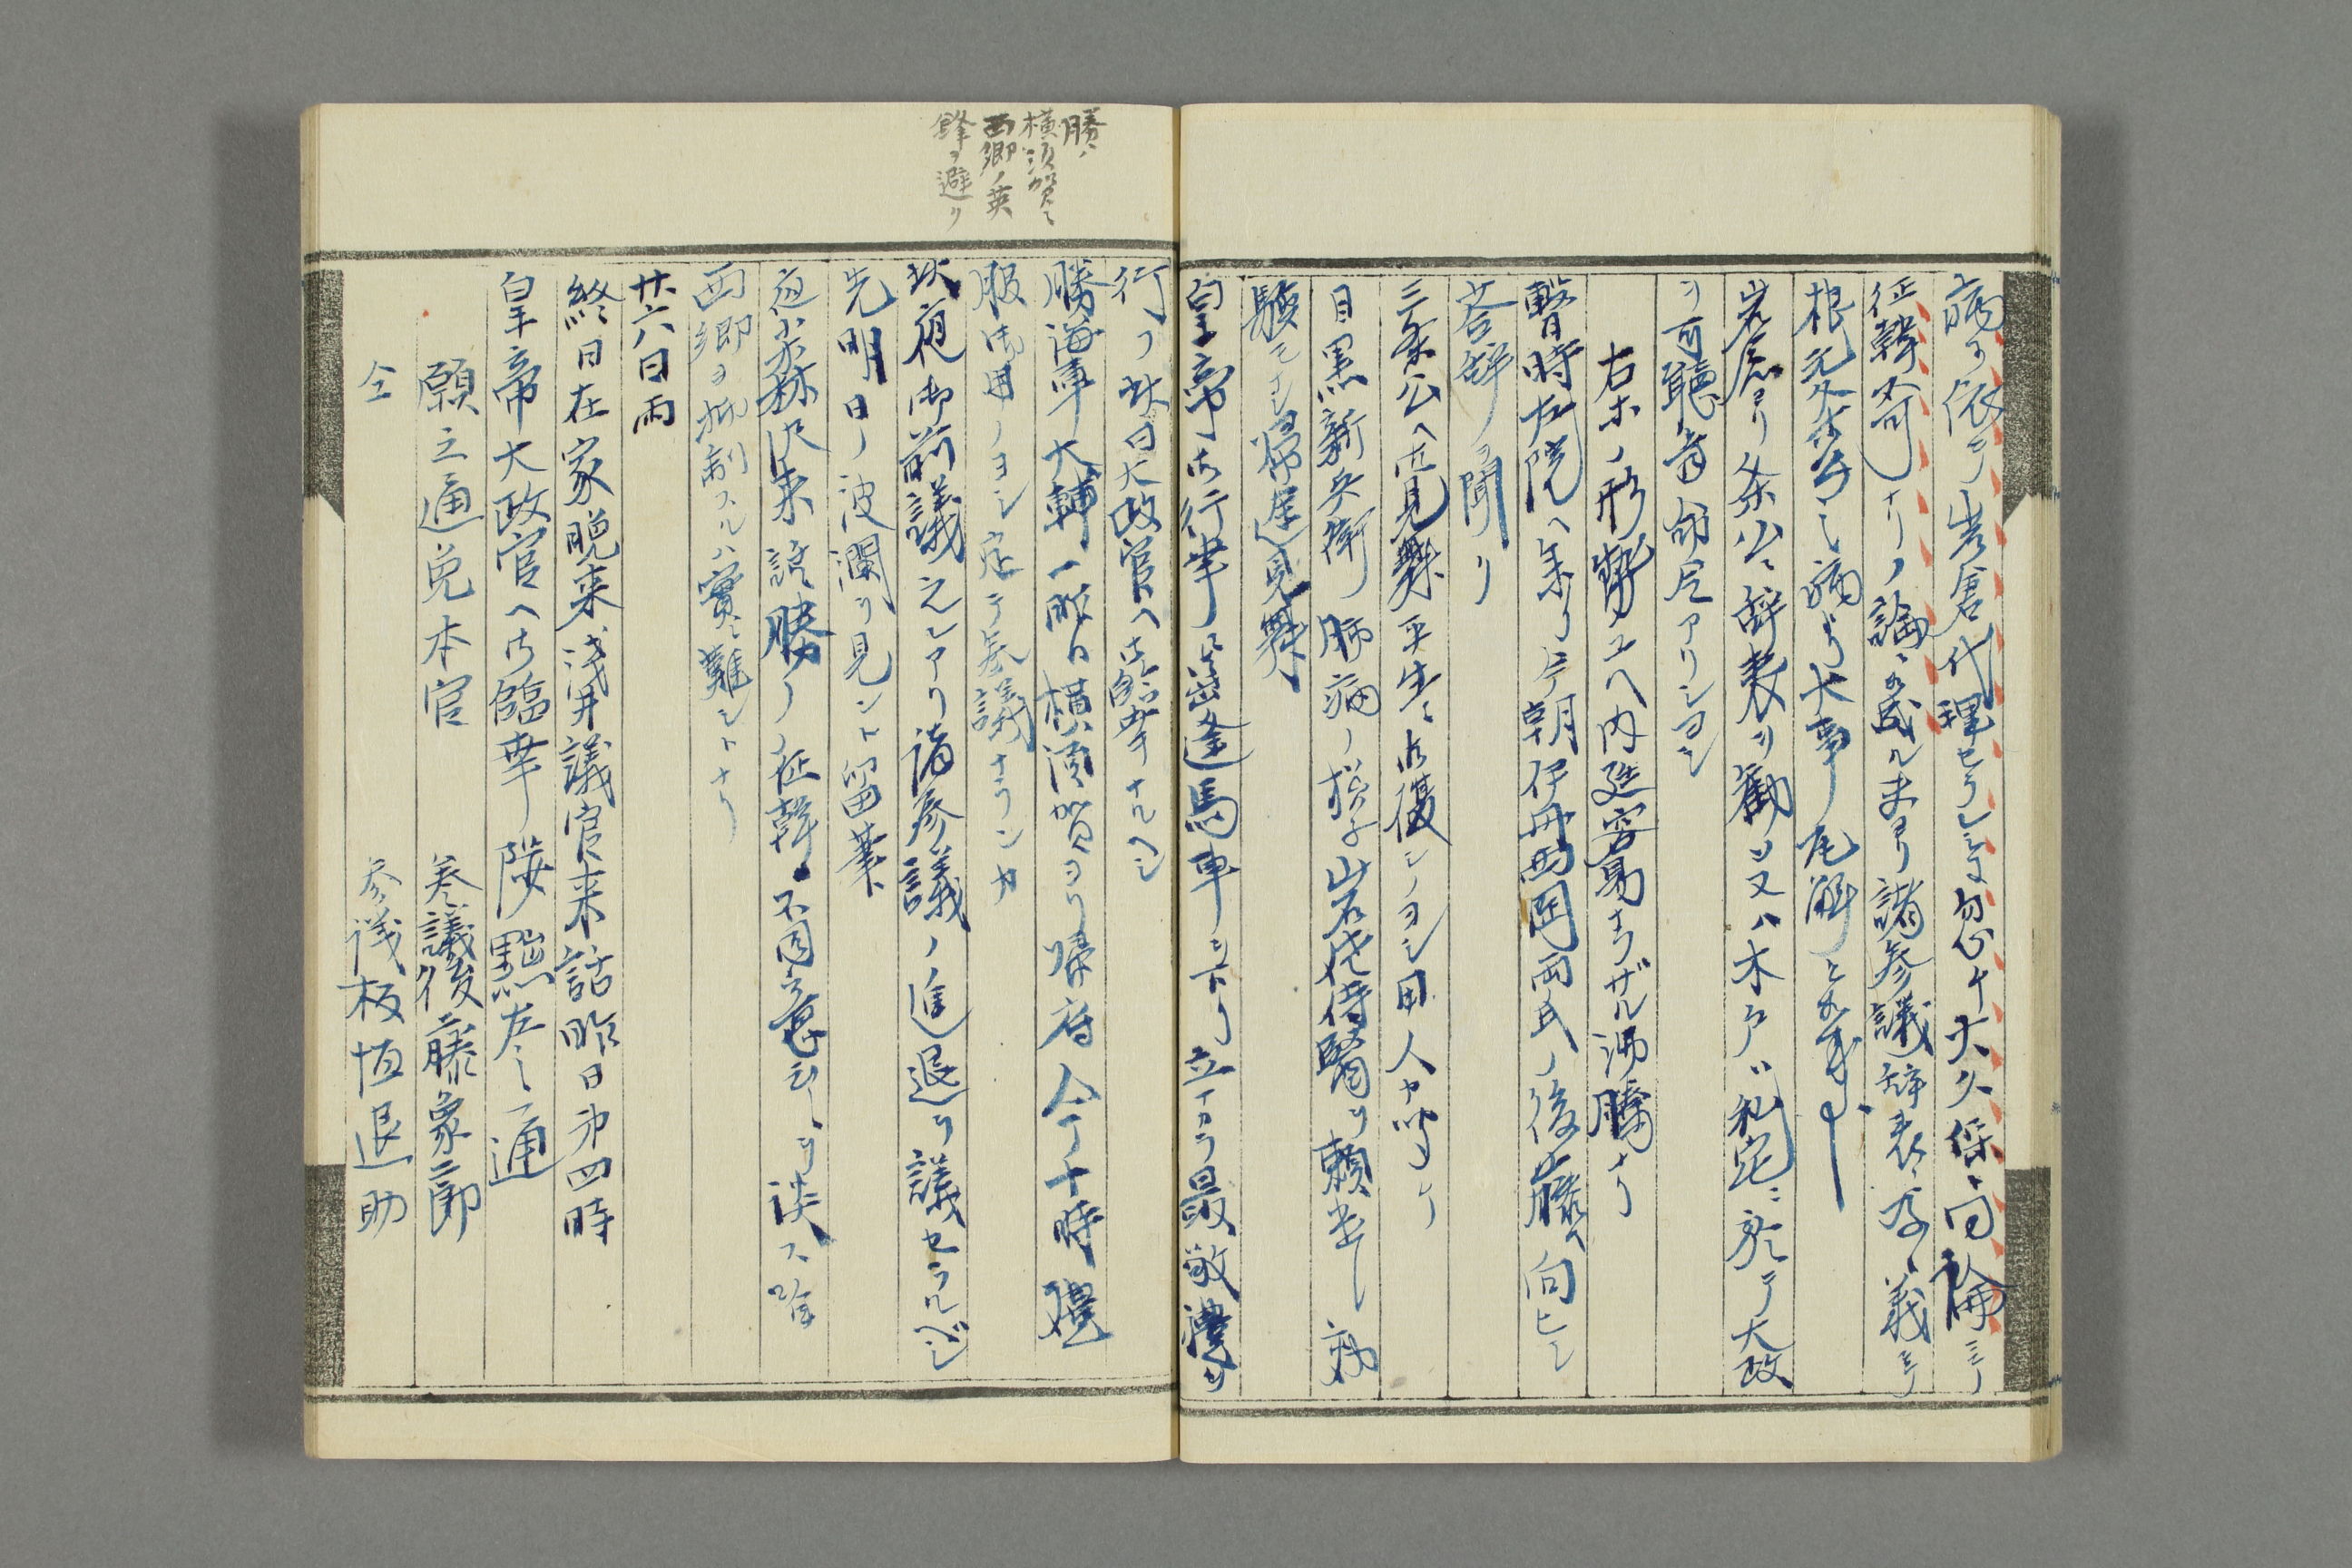 病ニ依テ岩倉代理セラレシニ忽チ大久保ト同論ニテ
征韓不可ナリノ論ニ成ルヨリ諸参議辞表ニ及ヒ義ニテ
根元条公ノ病ヨリ大事ノ瓦解ト
岩倉ヨリ条公ニ辞表ヲ勧メ又ハ木戸ハ私宅ニ於テ大政
ヲ可聴旨命令アリシヨシ
右等ノ形勢ユヘ内廷容易ナラザル沸騰ナリ
暫時左院ヘ参リ今朝伊丹西岡両氏ノ後藤ヘ向ヒシ
答辞ヲ聞ケリ
三条公ヘ御見舞平生ニ御復シノヨシ用人
目黒新兵衛肺病ノ様子岩佐侍醫ヲ頼
帰途見舞
皇帝御行幸ニ出逢馬車ヲ下リ立ナカラ最敬禮ヲ
行フ此日大政官ヘ御臨幸ナルヘシ
勝海軍大輔一昨日横須賀ヨリ帰府今十時礼
服御用ノヨシ定テ参議ナランカ
此夜御前議之レアリ諸参議ノ進退ヲ議セラルベシ
先明日ノ波瀾ヲ見ント留筆
夜小森沢来話勝ノ征韓不同意
西郷ヲ抑制スルハ實ニ難シトナリ
廿六日雨
終日在家晩来浅井議官来話昨日第四時
皇帝大政官ヘ御臨幸陟黜左之通
願之通免本官 参議後藤象二郎
仝 参議板垣退助
勝ハ
横須賀ニ
西郷ノ英
鋒ヲ避ケ